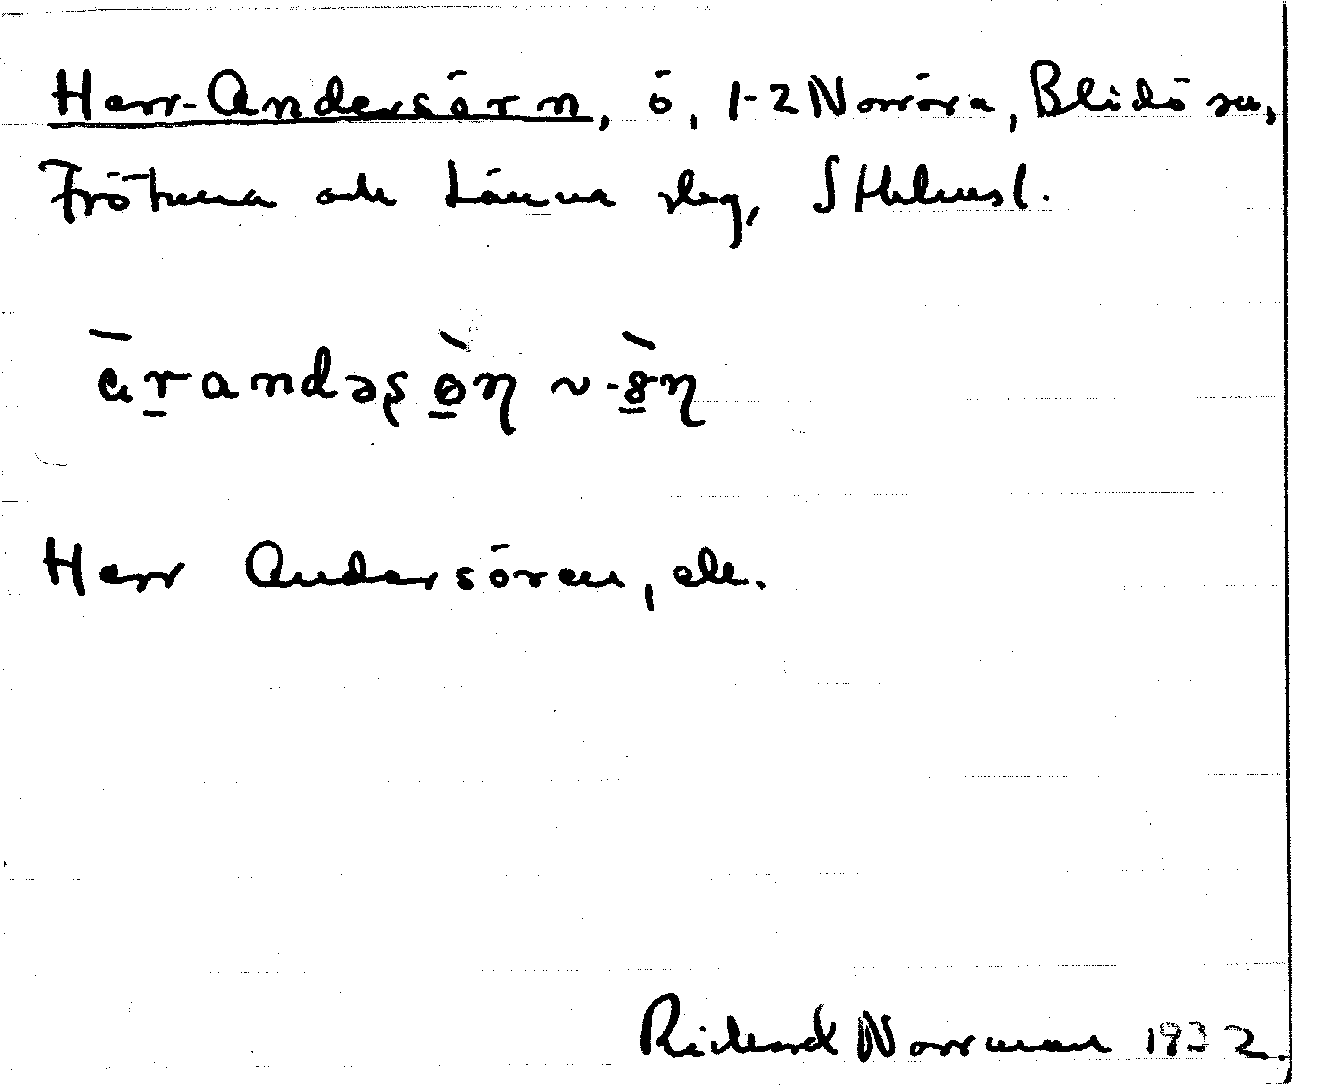 Herr-Andersörn, ö, 1-2 Norröra, Blidö sn,
Frötuna och Länna slag, Sthlmsl.
ærandəʂøɳ ~ -8ɳ
Herr Andersören, ek.
Rickard Norrman 1932.